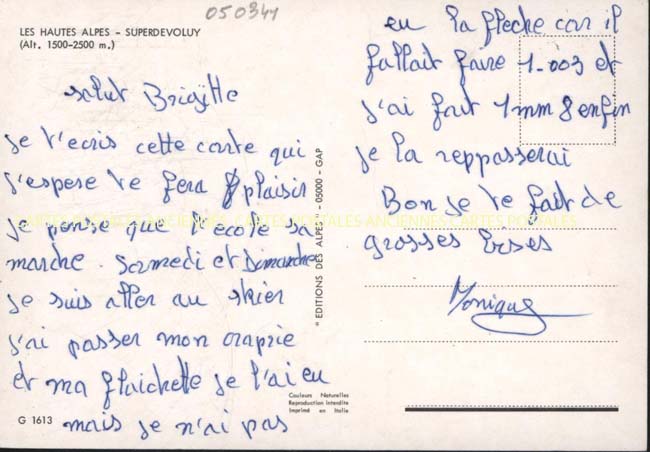 050341
LES HAUTES ALPES - SUPERDEVOLUY
(Alt. 1500-2500 m.)
salut Brigitte
je t'ecris cette carte qui
j'espere te fera plaisir
je pense que l'ecole sa
marche. Samedi et Dimanche
je suis aller au skier
j'ai passer mon
et ma flaichette je l'ai eu
mais je n'ai pas
G 1613
"EDITIONS DES ALPES" - 05000 - GAP
Couleurs Naturelles
Reproduction Interdite
Imprimé en Italie
eu la fleche car il
fallait faire 1.003 et
j'ai fait 1mm 8 enfin
je la reppasserai
Bon je te fait de
grosses Bises
Monique
CARTES POSTALES ANCIENNES CARTES POSTALES ANCIENNES CARTES POSTALES